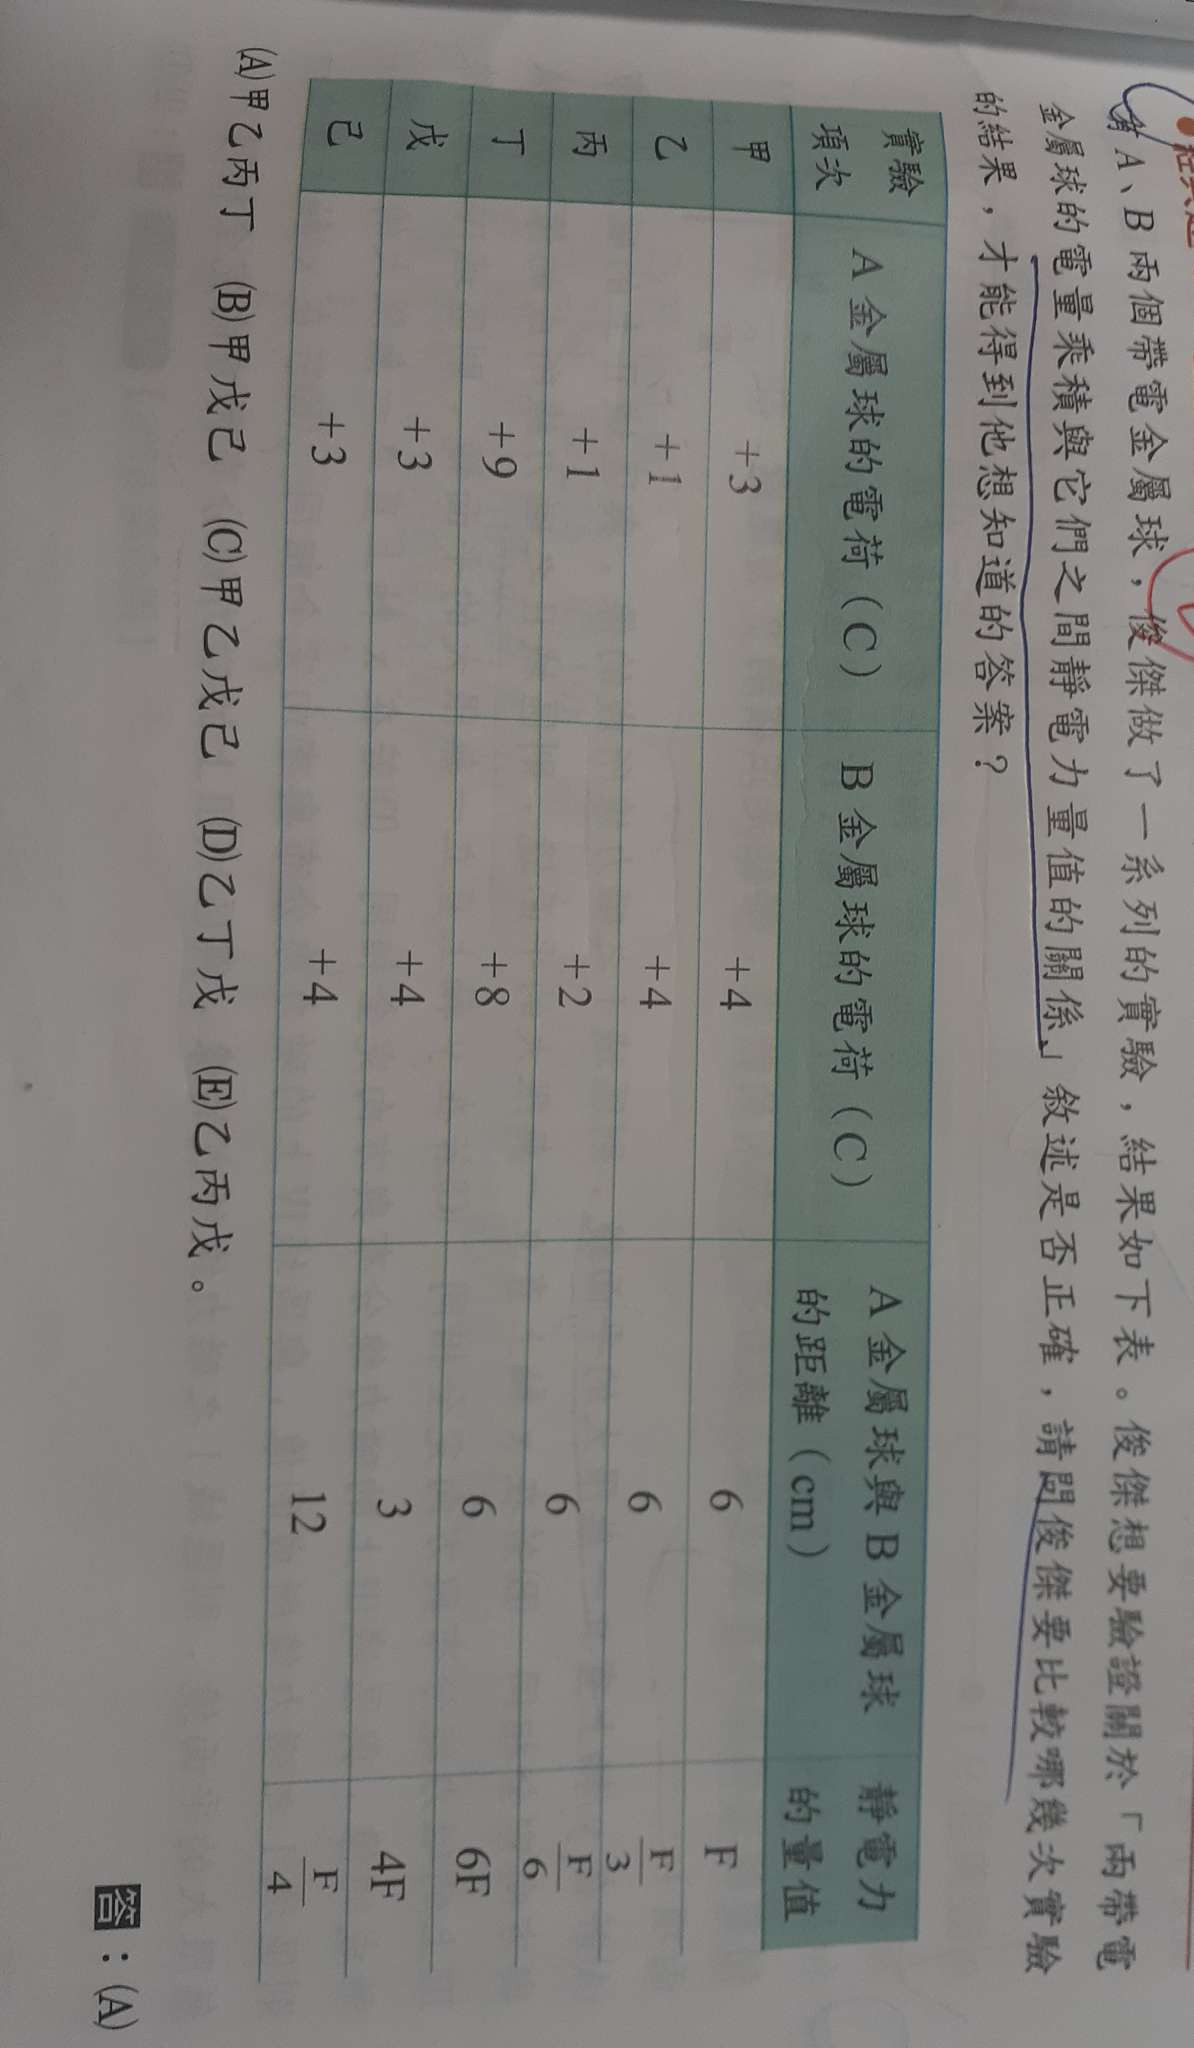 A、B兩個帶電金屬球，俊傑做了一系列的實驗，結果如下表。俊傑想要驗證關於「兩帶電
金屬球的電量乘積與它們之間靜電力量值的關係」敘述是否正確，請問俊傑要比較哪幾次實驗
的結果，才能得到他想知道的答案？
實驗項次 A金屬球的電荷（C） B金屬球的電荷（C） A金屬球與B金屬球的距離（cm） 靜電力的量值
甲 +3 +4 6 F
乙 +1 +4 6 F/3
丙 +1 +2 6 F/6
丁 +9 +8 6 6F
戊 +3 +4 3 4F
己 +3 +4 12 F/4
(A)甲乙丙丁 (B)甲戊己 (C)甲乙戊己 (D)乙丁戊 (E)乙丙戊。
答：(A)